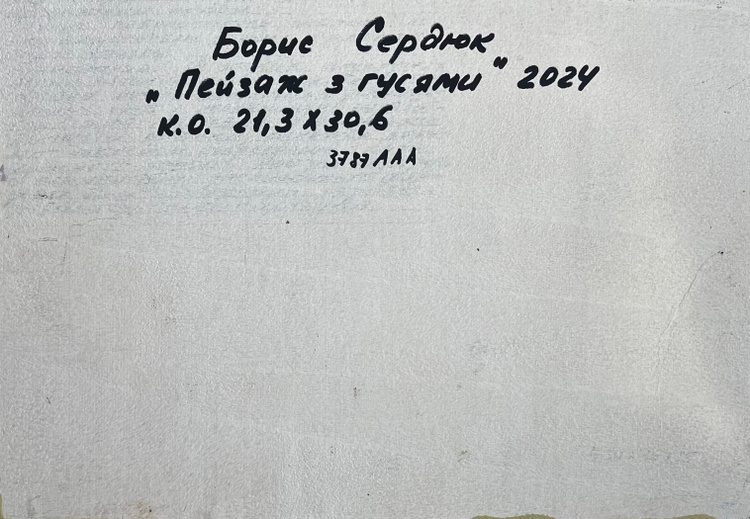 Борис Сердюк
„Пейзаж з гусями" 2024
К.О. 21,3 X 30,6
3787 ААА